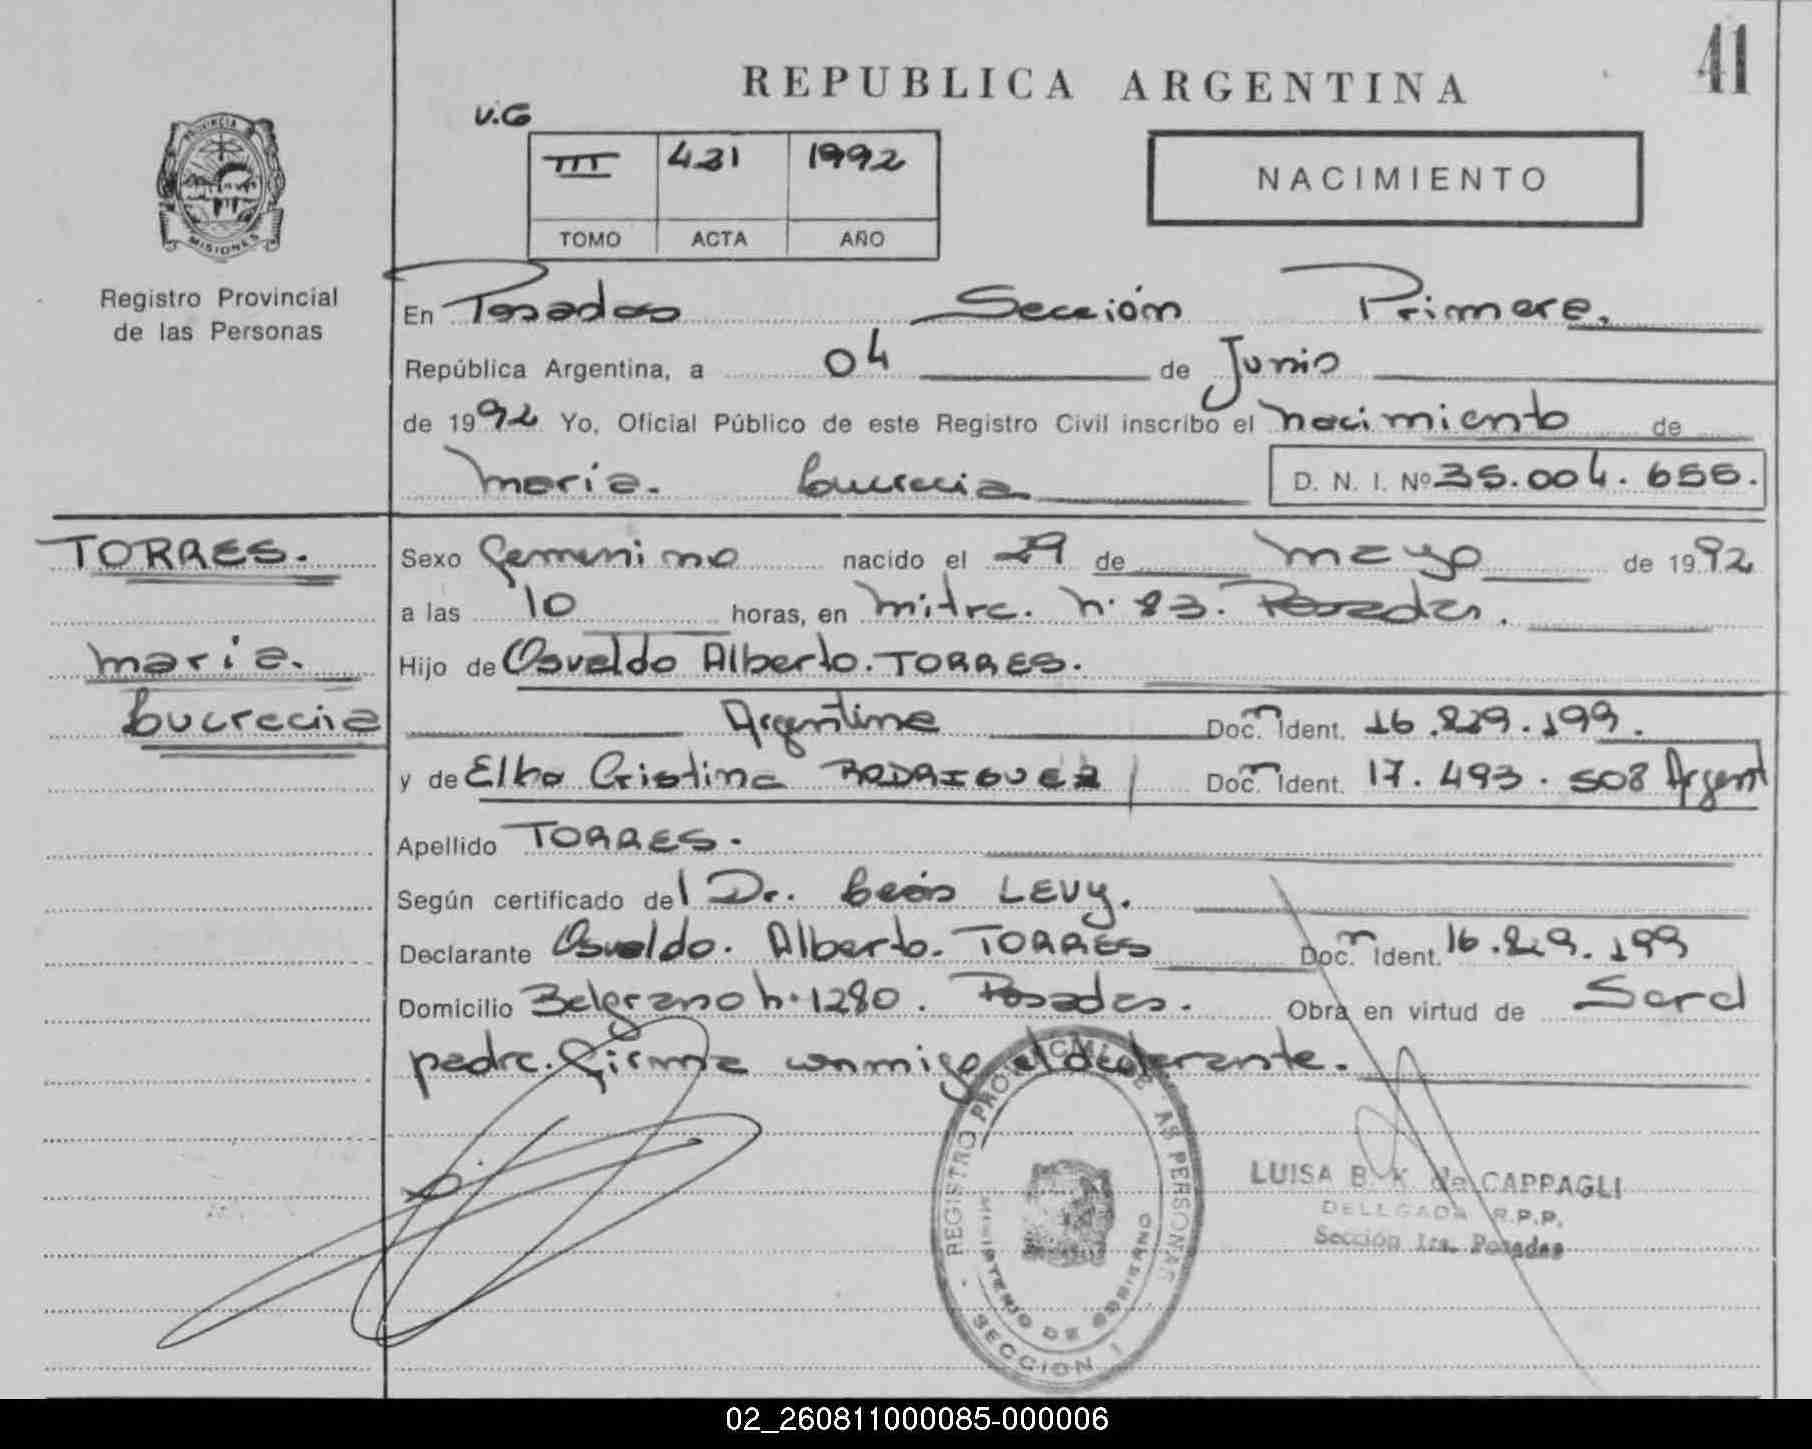 41
REPUBLICA ARGENTINA
V.G
III 421 1992
TOMO ACTA AÑO
NACIMIENTO
PROVINCIA DE
MISIONES
Registro Provincial
de las Personas
En Posadas Sección Primera.
República Argentina, a 04 de Junio
de 1992 Yo, Oficial Público de este Registro Civil inscribo el nacimiento de
María. Lucrecia D. N. I. Nº 35.004.656.
TORRES.
María.
Lucrecia
Sexo femenino nacido el 29 de mayo de 1992
a las 10 horas, en Mitre. N. 83. Posadas.
Hijo de Osvaldo Alberto. TORRES.
Argentina Doc. Ident. 16.829.199.
y de Elba Cristina RODRIGUEZ Doc. Ident. 17.493.508 Argent
Apellido TORRES.
Según certificado del Dr. León LEVY.
Declarante Osvaldo. Alberto. TORRES Doc. Ident. 16.829.199
Domicilio Belgrano N. 1280. Posadas. Obra en virtud de Ser el
padre. Firma conmigo el declarante.
REGISTRO PROVINCIAL DE LAS PERSONAS
MINISTERIO DE GOBIERNO
SECCION 1
LUISA B. K de CAPPAGLI
DELEGADA R.P.P.
Sección 1ra. Posadas
02_260811000085-000006